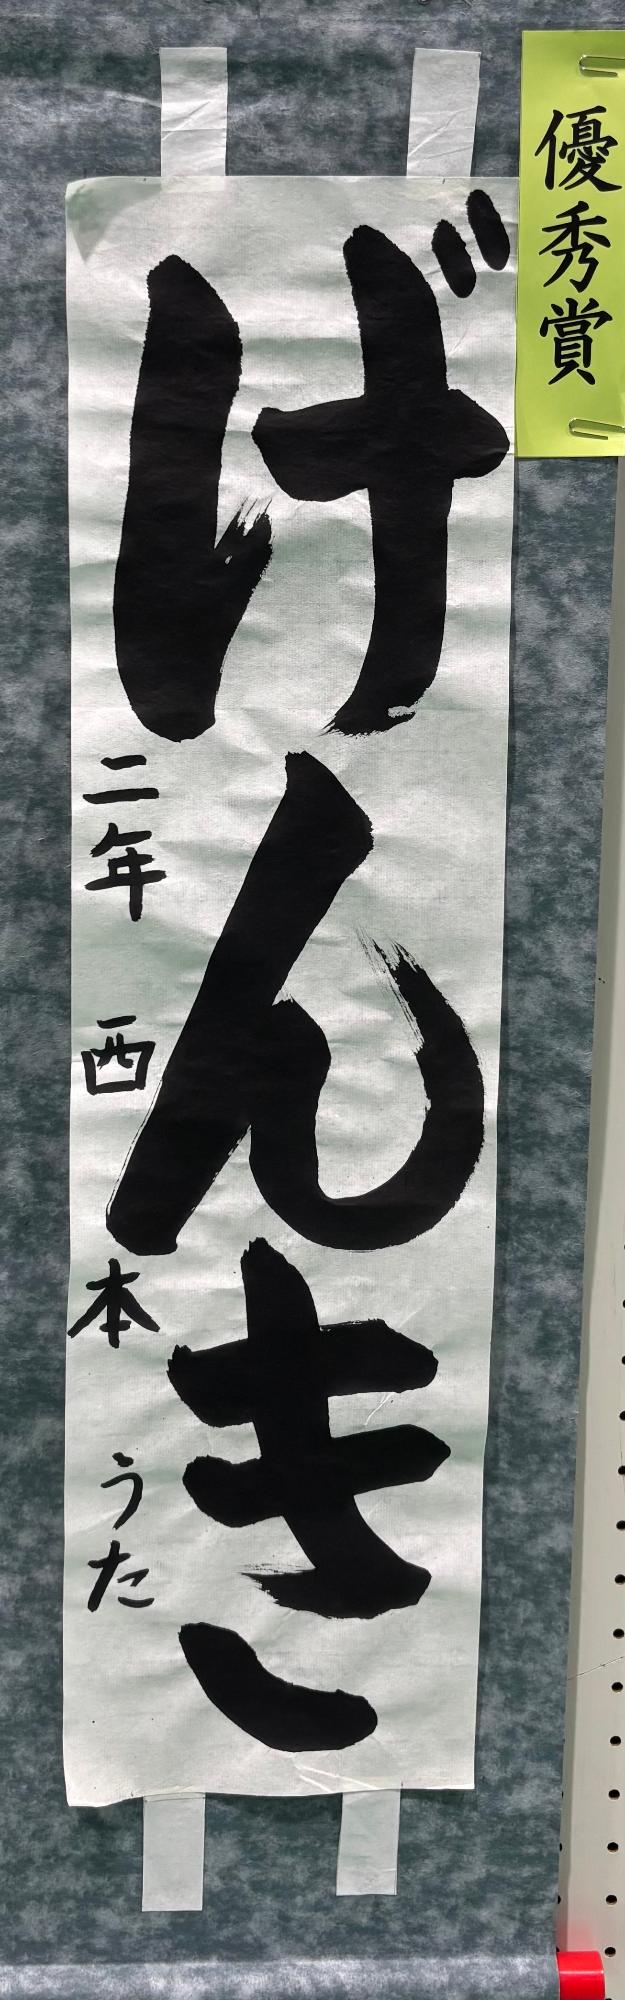 優秀賞
げんき
二年 西本 うた